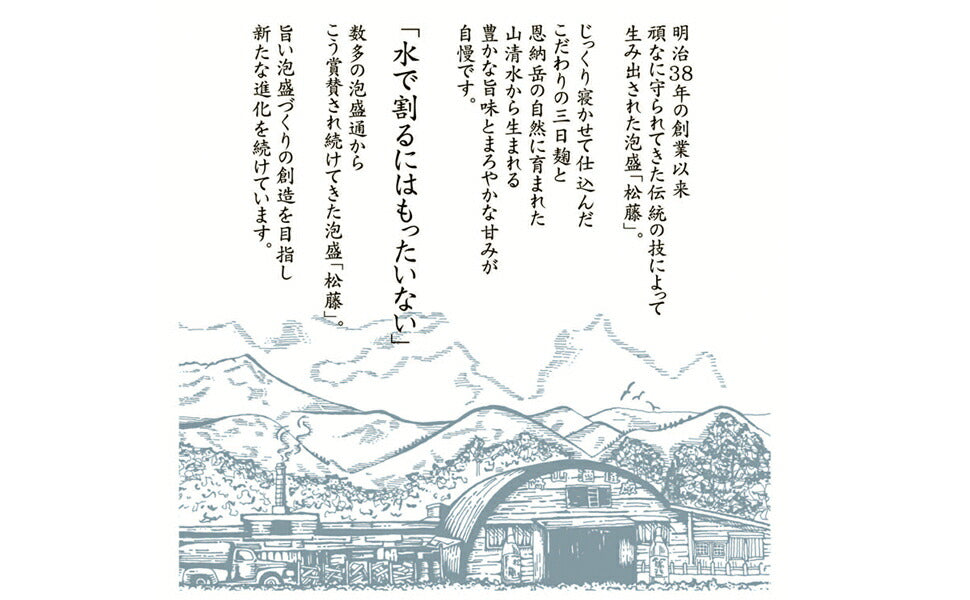 明治38年の創業以来
頑なに守られてきた伝統の技によって
生み出された泡盛「松藤」。
じっくり寝かせて仕込んだ
こだわりの三日麹と
恩納岳の自然に育まれた
山清水から生まれる
豊かな旨味とまろやかな甘みが
自慢です。
「水で割るにはもったいない」
数多の泡盛通から
こう賞賛され続けてきた泡盛「松藤」。
旨い泡盛づくりの創造を目指し
新たな進化を続けています。